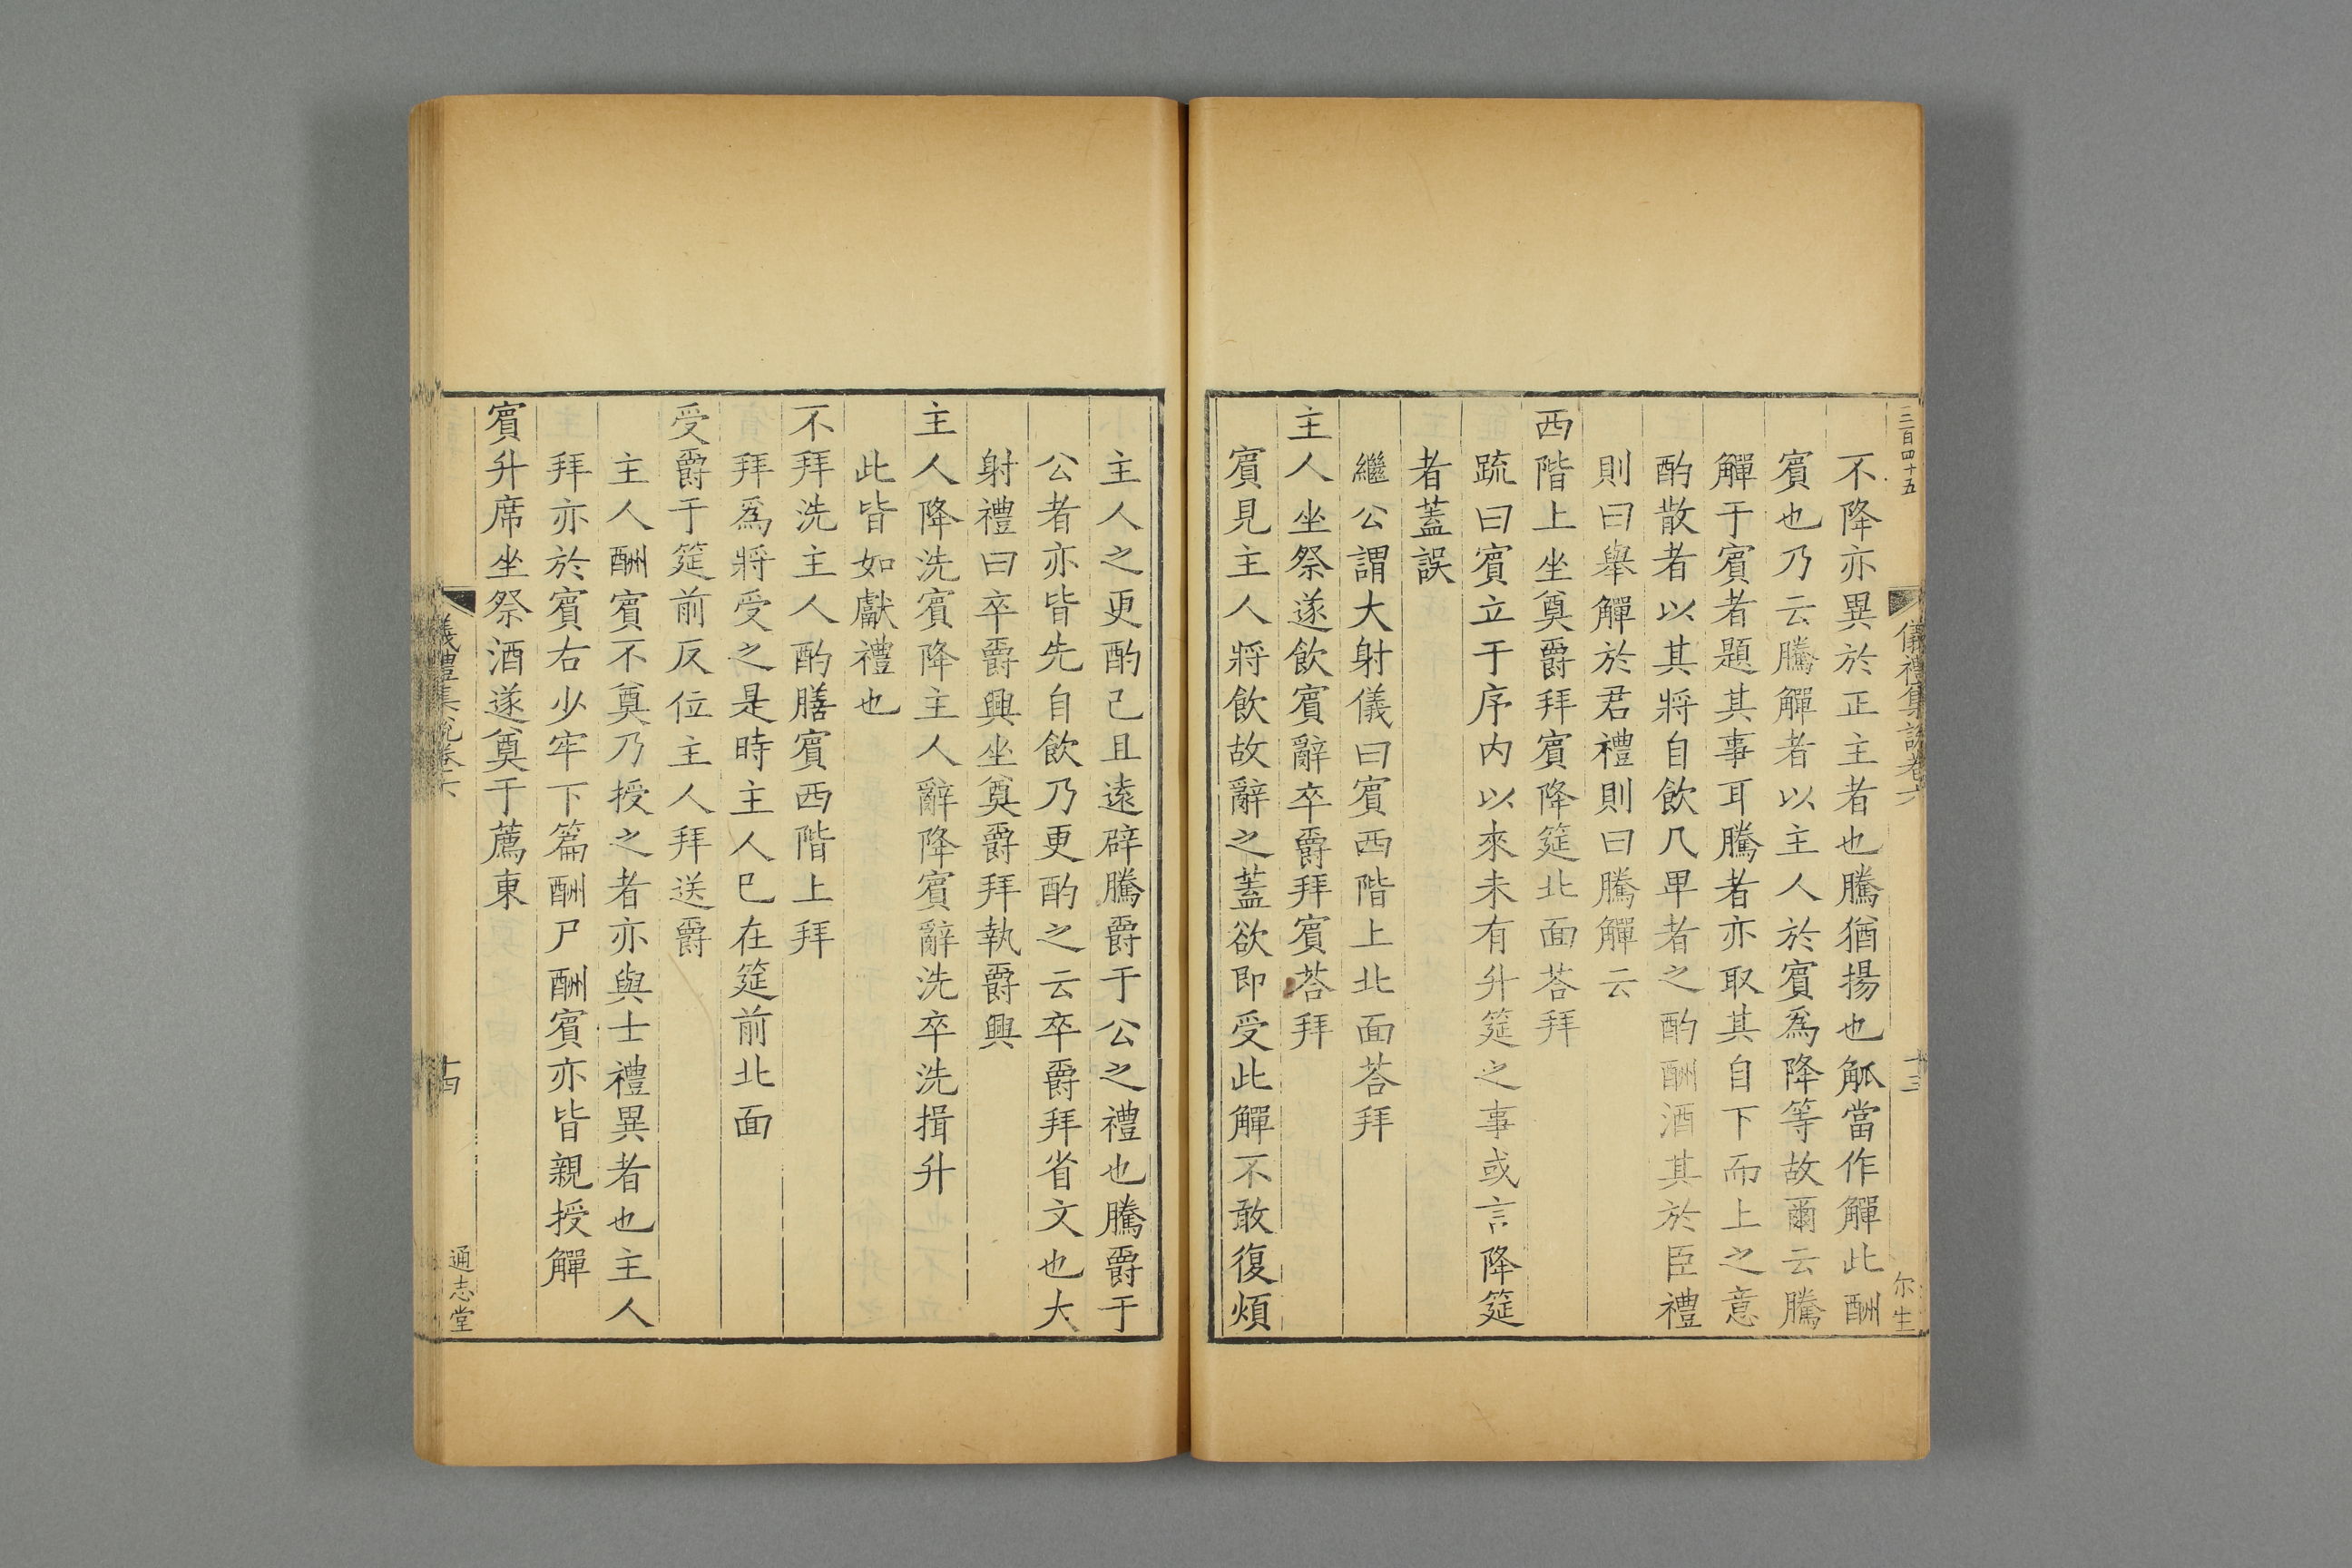 三百四十五
儀禮集説卷六
十三
尔生
不降亦異於正主者也騰猶揚也觚當作觶此酬
賓也乃云騰觶者以主人於賓爲降等故爾云騰
觶于賓者題其事耳騰者亦取其自下而上之意
酌散者以其將自飲凡卑者之酌酬酒其於臣禮
則曰舉觶於君禮則曰騰觶云
西階上坐奠爵拜賓降筵北面荅拜
䟽曰賓立于序内以來未有升筵之事或言降筵
者蓋誤
繼公謂大射儀曰賓西階上北面荅拜
主人坐祭遂飲賓辭卒爵拜賓荅拜
賓見主人將飲故辭之蓋欲即受此觶不敢復煩
主人之更酌己且遠辟騰爵于公之禮也騰爵于
公者亦皆先自飲乃更酌之云卒爵拜省文也大
射禮曰卒爵興坐奠爵拜執爵興
主人降洗賓降主人辭降賓辭洗卒洗揖升
此皆如獻禮也
不拜洗主人酌膳賓西階上拜
拜爲將受之是時主人巳在筵前北面
受爵于筵前反位主人拜送爵
主人酬賓不奠乃授之者亦與士禮異者也主人
拜亦於賓右少牢下篇酬尸酬賓亦皆親授觶
賓升席坐祭酒遂奠于薦東
儀禮集説卷六
十四
通志堂